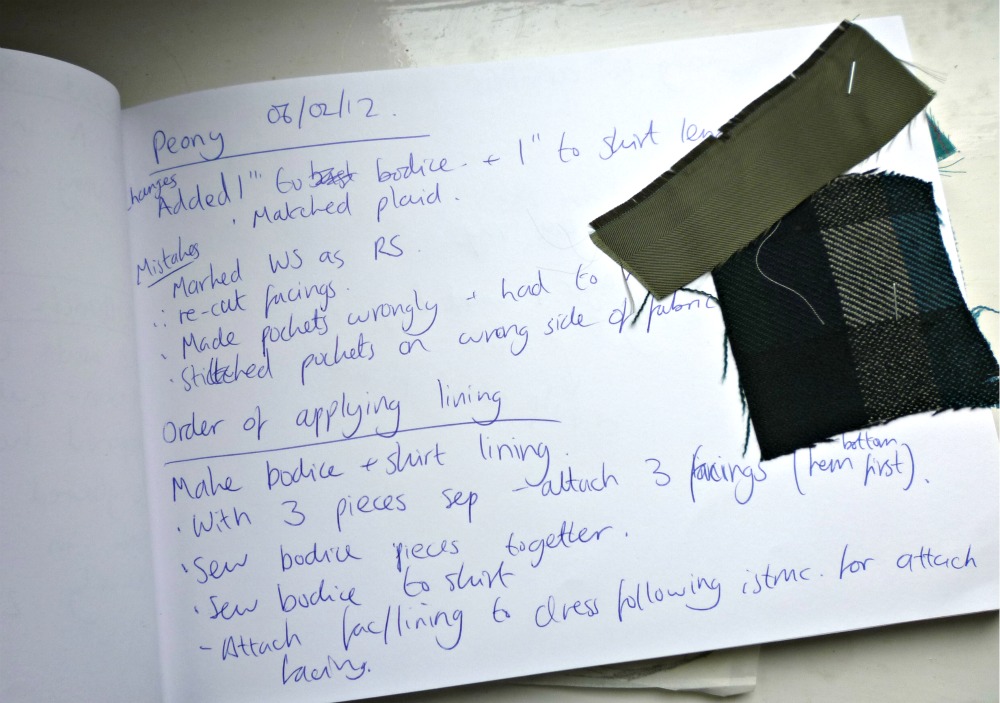 Peony 06/02/12.
Changes
Added 1" to bodice + 1" to skirt len
· Matched plaid.
Mistakes
Marked WS as RS.
∴ re-cut facings.
· Made pockets wrongly + had to
· Stitched pockets on wrong side of fabric
Order of applying lining
Make bodice + skirt lining.
· With 3 pieces sep - attach 3 facings (hem bottom first).
· Sew bodice pieces together.
· Sew bodice to skirt
- Attach fac/lining to dress following istruc. for attach
facing.